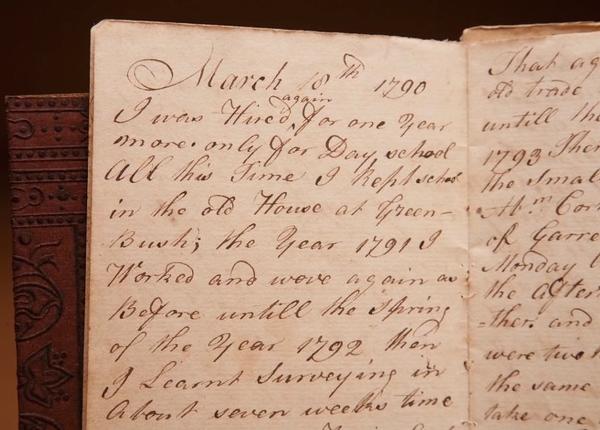 March 18th 1790
again
I was Hired, for one Year
more. only for Day, school
All this Time I Kept school
in the old House at Green-
Bush; the Year 1791 I
Worked and wove again as
Before untill the spring
of the Year 1792 then
I Learnt Surveying in
About seven weeks time
That
old trade
untill
1793
the small
Abm. Cor
of Garre
Monday
the After
=ther and
were two
the same
take one